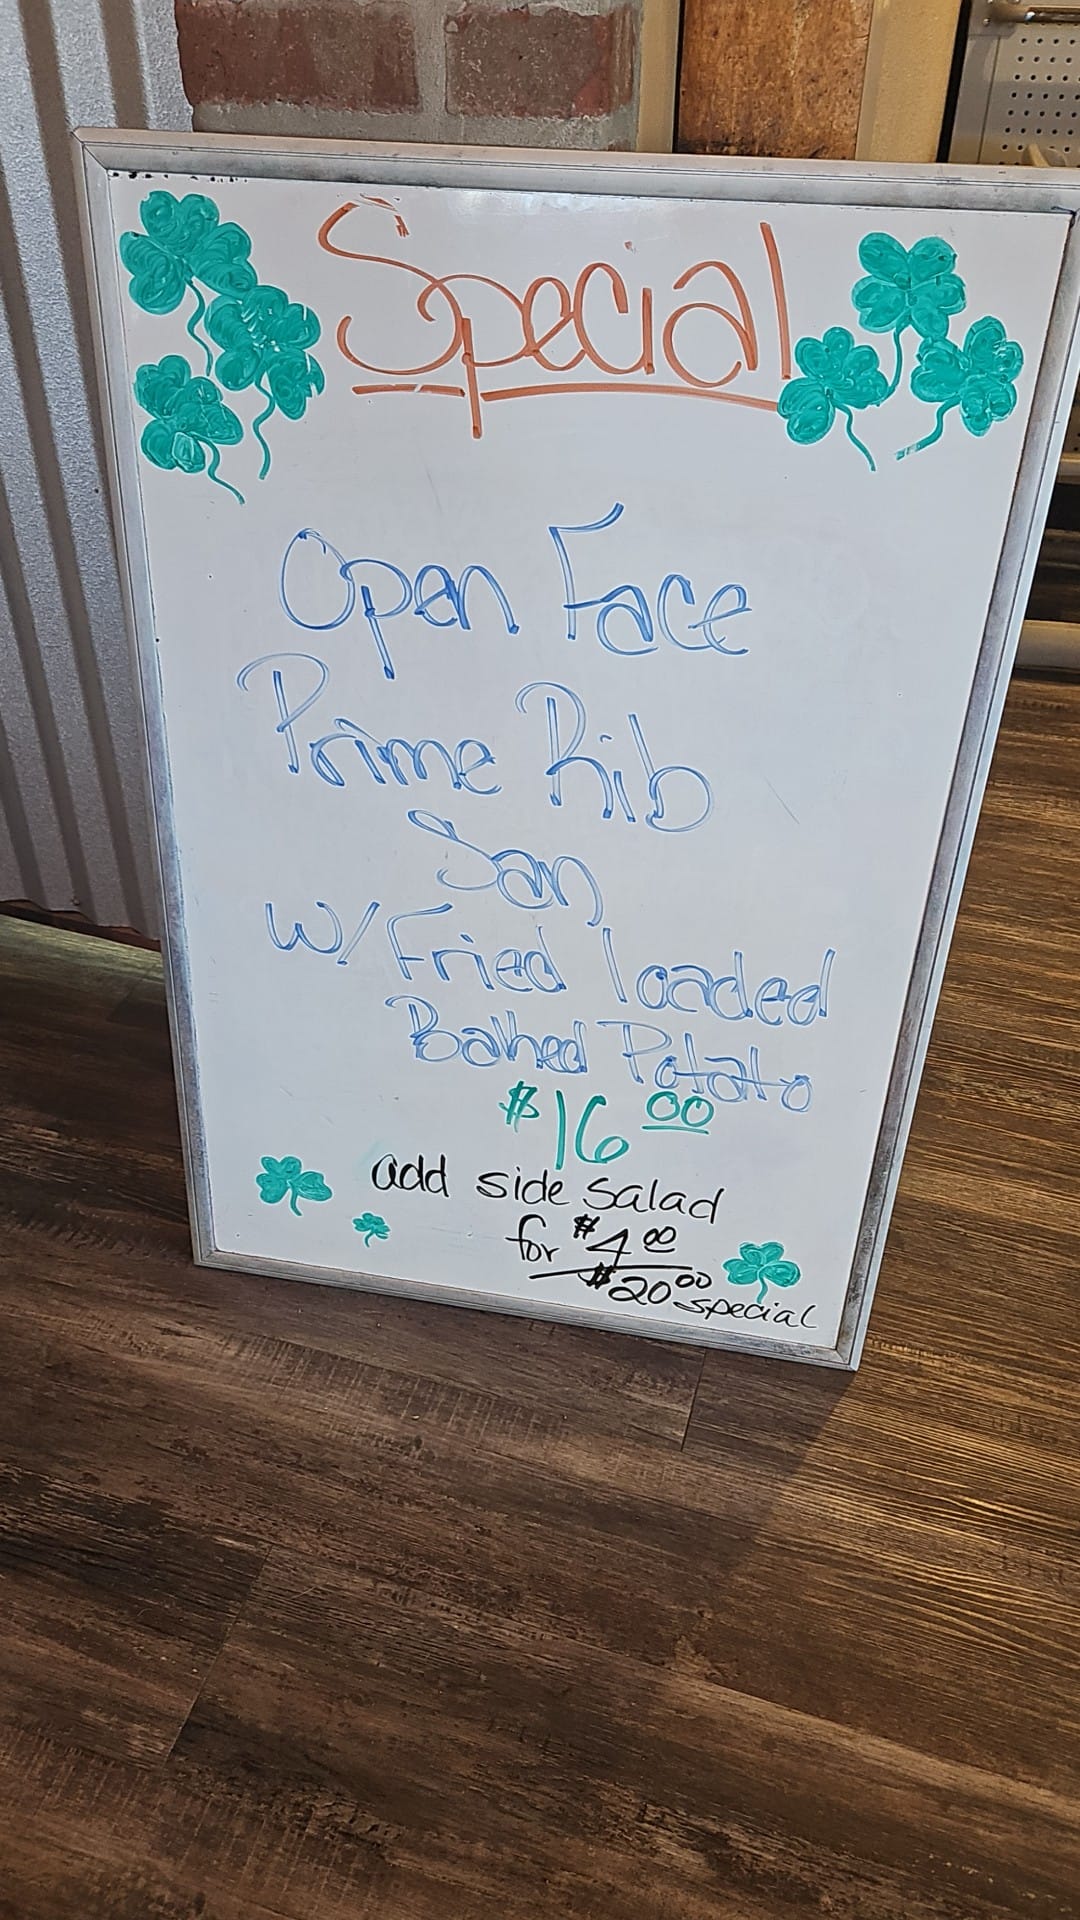 Special
Open Face
Prime Rib
San
w/ Fried loaded
Baked Potato
$16.00
add side salad
for $4.00
$20.00 special